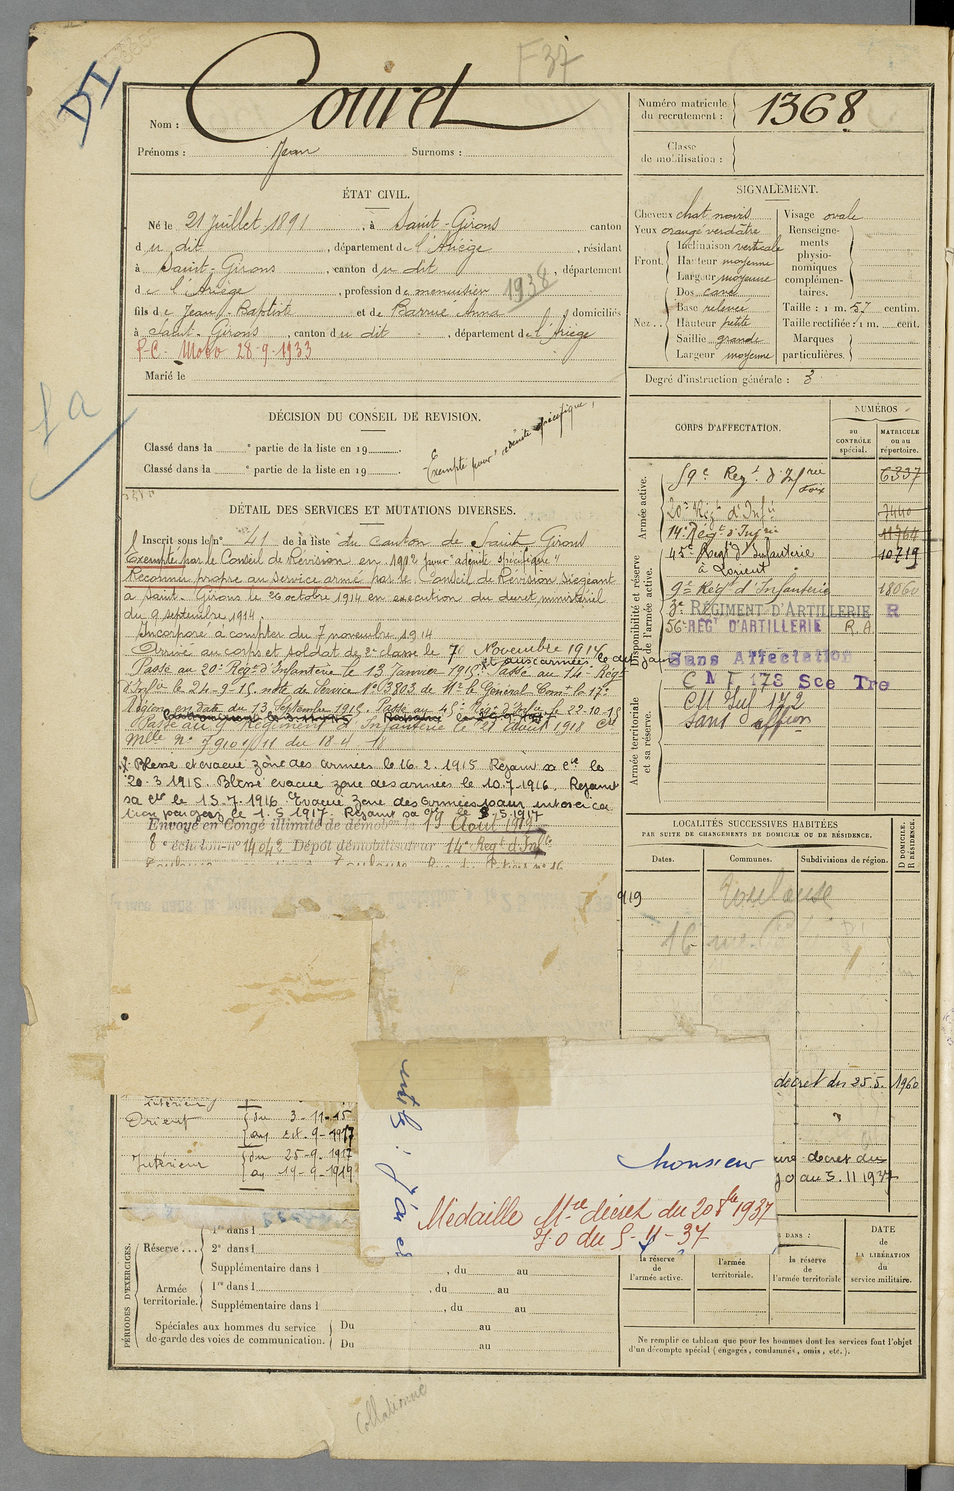 F37
DI
Nom : Couret
Prénoms : Jean Surnoms :
Numéro matricule du recrutement : 1368
Classe de mobilisation :
ÉTAT CIVIL.
Né le 21 Juillet 1891, à Saint-Girons canton
du dit, département de l'Ariège, résidant
à Saint-Girons, canton du dit, département
de l'Ariège, profession de menuisier 1938
fils de Jean-Baptiste et de Barrué Anna domiciliés
à Saint-Girons, canton du dit, département de l'Ariège
P.C. Mobo 28.9.1933
Marié le
SIGNALEMENT.
Cheveux chat noirs
Yeux orangé verdâtre
Front. Inclinaison verticale
Hauteur moyenne
Largeur moyenne
Nez.. Dos cave
Base relevée
Hauteur petite
Saillie grande
Largeur moyenne
Visage ovale
Renseignements physionomiques complémentaires.
Taille : 1 m. 57 centim.
Taille rectifiée : 1 m. cent.
Marques particulières.
Degré d'instruction générale : 3
1a
DÉCISION DU CONSEIL DE REVISION.
Classé dans la ° partie de la liste en 19
Classé dans la ° partie de la liste en 19
Exempté pour "adénite spécifique"
DÉTAIL DES SERVICES ET MUTATIONS DIVERSES.
Inscrit sous le n° 41 de la liste du canton de Saint Girons
Exempté par le Conseil de Révision en 1912 pour "adénite spécifique"
Reconnu propre au service armé par le Conseil de Révision siégeant
à Saint-Girons le 26 octobre 1914 en exécution du décret ministériel
du 9 septembre 1914.
Incorporé à compter du 7 novembre 1914
Arrivé au corps et soldat de 2e classe le 7 Novembre 1914
Passé au 20e Régt d'Infanterie le 13 Janvier 1915. Passé au 14e Régt
d'Infie le 24-9-15 note de Service N° 3803 de Mr le Général Comt la 17e
Région en date du 13 Septembre 1915. Passé au 45e Régt d'Infie le 22-10-15
Passé au 9e Régiment d'Infanterie le 21 août 1918 Cre
Mlle n° 7910 1/11 du 18-4-18
Blessé et évacué zône des armées le 16.2.1915 Rejoint sa cie le
20-3-1915. Blessé évacué zone des armées le 10.7.1916. Rejoint
sa cie le 15.7.1916 Evacué zone des armées pour intoxica
tion par gaz le 1.5.1917. Rejoint sa cie le 5.5.1917
Envoyé en Congé illimité de démob le 19 Août 1919
8e échelon n° 14042 Dépôt démobilisateur 14e Regt d'Infie
CORPS D'AFFECTATION.
NUMÉROS
au CONTRÔLE spécial.
MATRICULE ou au répertoire.
Armée active.
59e Regt d'Infrie Foix 6337
20e Régt d'Infie 7440
14e Régt d'Infrie 11764
Disponibilité et réserve de l'armée active.
45e Régt d'Infanterie à Lorient 10719
9e Régt d'Infanterie 18060
3e RÉGIMENT D'ARTILLERIE R
56e RÉGT D'ARTILLERIE R.A.
Sans Affectation
Armée territoriale et sa réserve.
C M I 178 Sce Tre
CM Inf 172
Sans affion
LOCALITÉS SUCCESSIVES HABITÉES
PAR SUITE DE CHANGEMENTS DE DOMICILE OU DE RÉSIDENCE.
Dates. Communes. Subdivisions de région. D DOMICILE. R RÉSIDENCE.
919 Toulouse
16 rue
décret du 25.5.1960
décret du
JO au 5.11.1937
Intérieur
Orient du 3-11-15
au 24-9-1917
Intérieur du 25-9-1917
au 19-9-1919
Monsieur
Médaille Mre décret du 20 8bre 1937
J.O du 5-11-37
PÉRIODES D'EXERCICES.
Réserve... 1re dans l
2e dans l
Supplémentaire dans l , du au
Armée territoriale. 1re dans l , du au
Supplémentaire dans l , du au
Spéciales aux hommes du service de garde des voies de communication. Du au
Du au
DANS :
la réserve de l'armée active.
l'armée territoriale.
la réserve de l'armée territoriale
DATE de LA LIBÉRATION du service militaire.
Ne remplir ce tableau que pour les hommes dont les services font l'objet
d'un décompte spécial (engagés, condamnés, omis, etc.).
Collationné